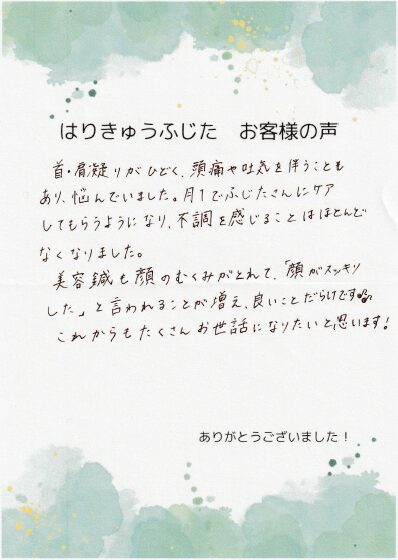 はりきゅうふじた　お客様の声
首・肩凝りがひどく、頭痛や吐気を伴うことも
あり、悩んでいました。月1でふじたさんにケア
してもらうようになり、不調を感じることはほとんど
なくなりました。
美容鍼も顔のむくみがとれて、「顔がスッキリ
した」と言われることが増え、良いことだらけです♪
これからもたくさんお世話になりたいと思います!
ありがとうございました！